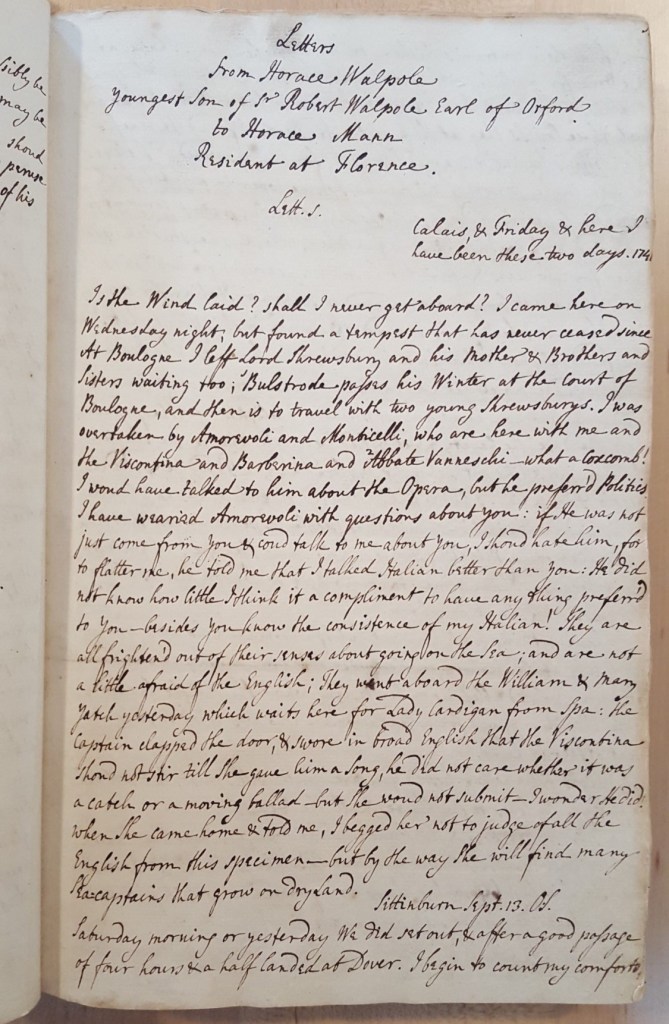 sibly be
may be
shoud
peruse
of his
Letters
From Horace Walpole
youngest Son of Sr. Robert Walpole Earl of Orford
to Horace Mann
Resident at Florence.
Lett. 1.
Calais, & Friday & here I
have been these two days. 1741
Is the Wind laid? shall I never get aboard? I came here on
Wednesday night, but found a tempest that has never ceased since
At Boulogne I left Lord Shrewsbury and his Mother & Brothers and
Sisters waiting too; Bulstrode passes his Winter at the court of
Boulogne, and then is to travel with two young Shrewsburys. I was
overtaken by Amorevoli and Monticelli, who are here with me and
the Viscontina and Barberina and Abbate Vanneschi—what a coxcomb!
I woud have talked to him about the Opera, but he preferr'd Politics
I have wearied Amorevoli with questions about you: if He was not
just come from you & coud talk to me about you, I shoud hate him, for
to flatter me, he told me that I talked Italian better than you: He did
not know how little I think it a compliment to have any thing preferr'd
to you—besides you know the consistence of my Italian! They are
all frighten'd out of their senses about going on the Sea; and are not
a little afraid of the English; They went aboard the William & Mary
Yatch yesterday which waits here for Lady Cardigan from Spa: the
Captain clapped the door, & swore in broad English that the Viscontina
shoud not stir till She gave him a Song, he did not care whether it was
a catch or a moving ballad—but She woud not submit—I wonder He did!
when She came home & told me, I begged her not to judge of all the
English from this specimen—but by the way She will find many
Sea-captains that grow on dry Land.
Sittinburn Sept. 13. OS.
Saturday morning or yesterday We did set out, & after a good passage
of four hours & a half landed at Dover. I begin to count my comforts,